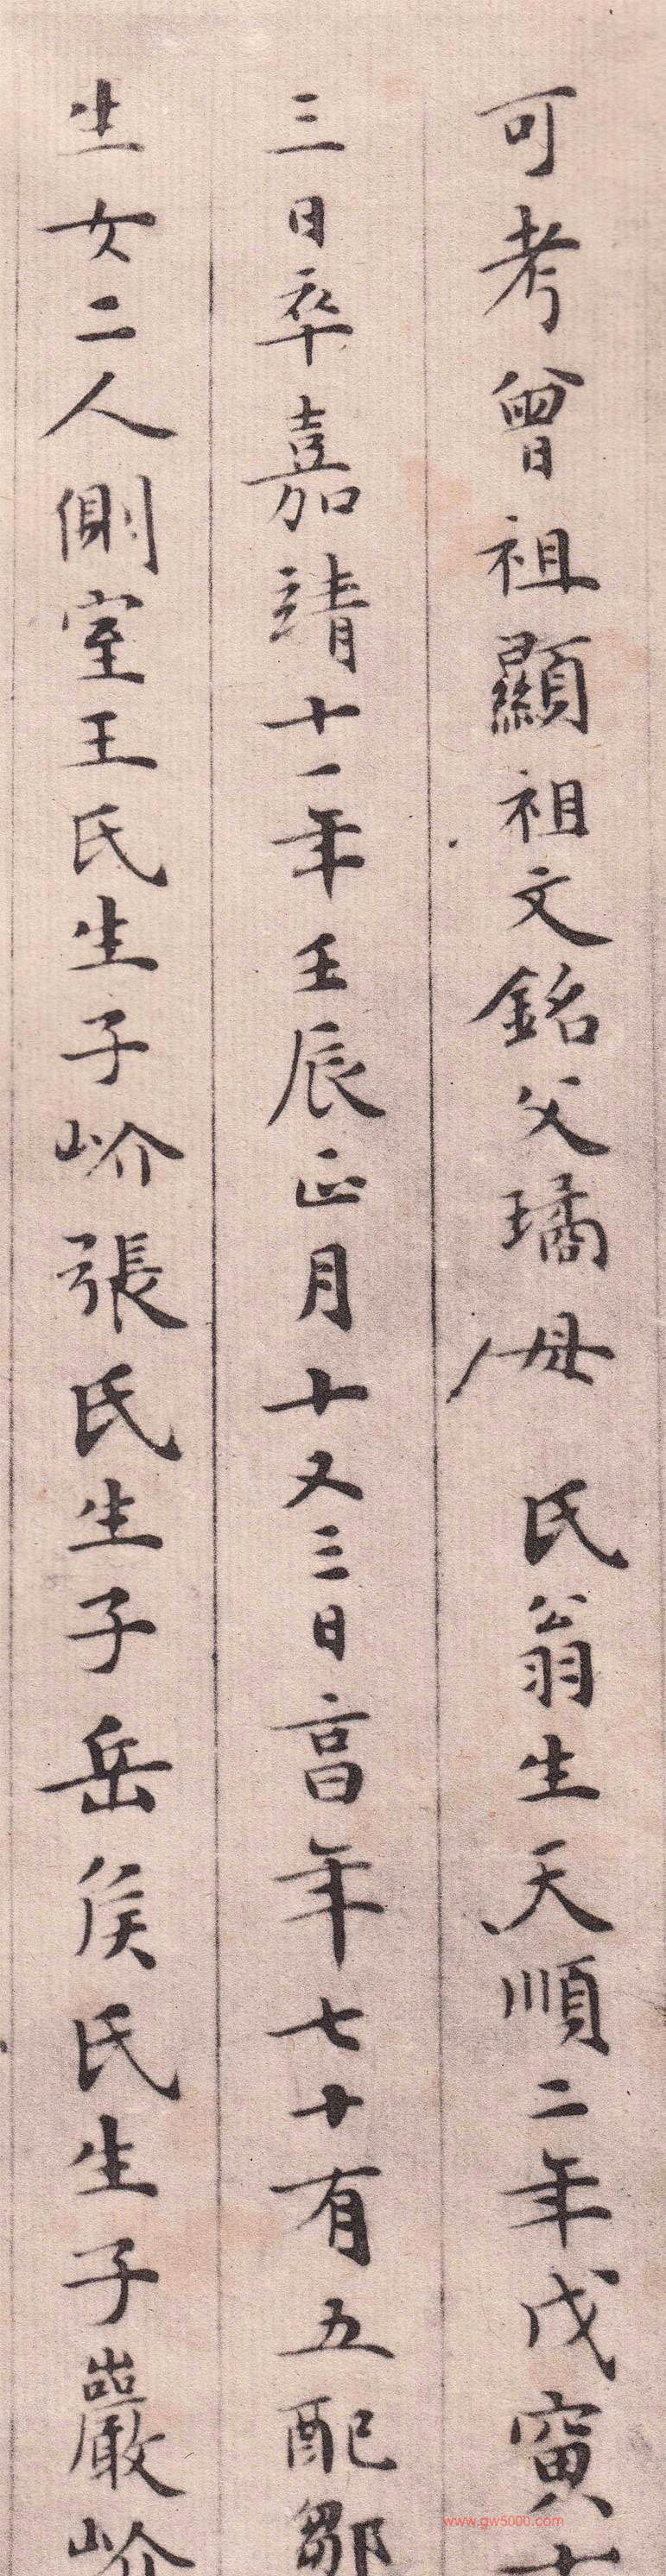 可考曾祖顯祖文銘父璚母氏翁生天順二年戊寅十
三日卒嘉靖十一年壬辰正月十又三日享年七十有五配鄒
生女二人側室王氏生子岕張氏生子岳侯氏生子巖岕
www.gw5000.com